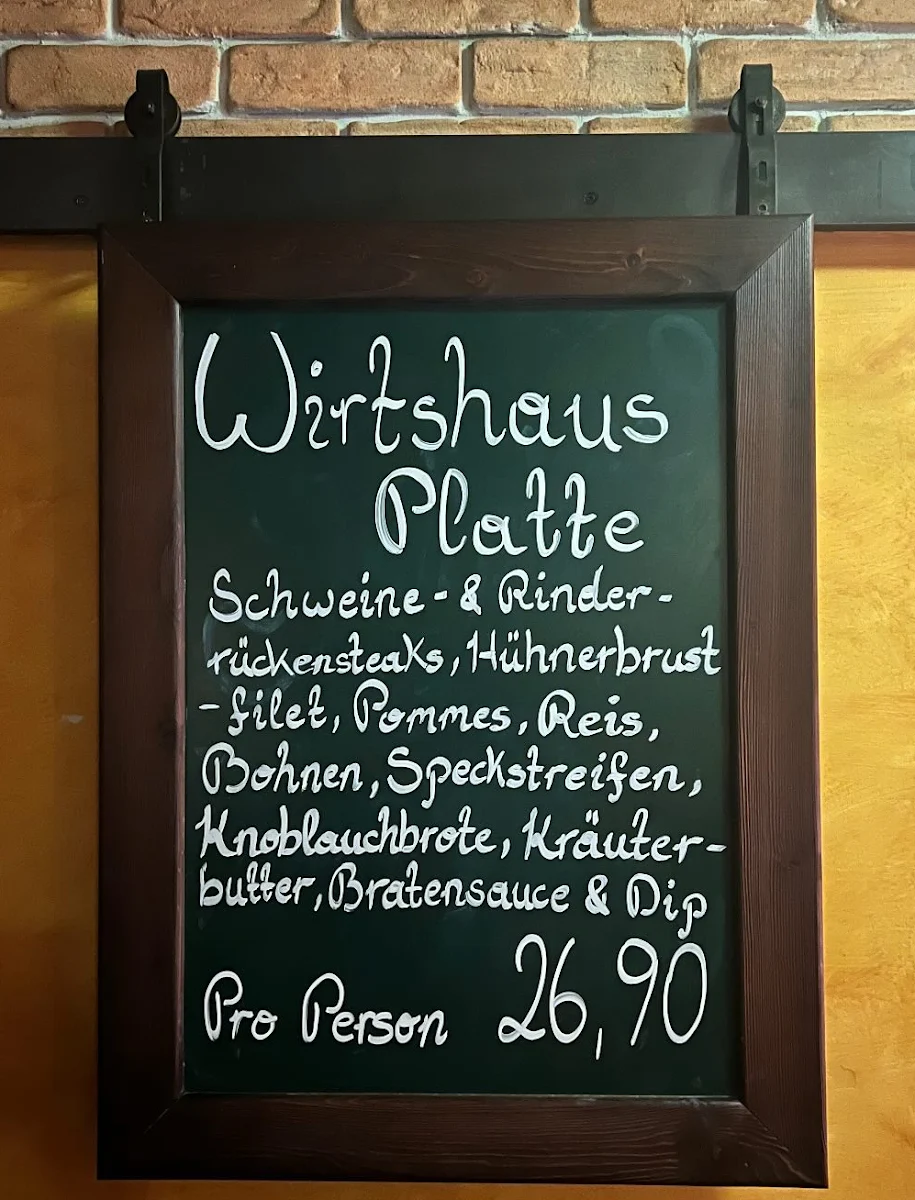 Wirtshaus
Platte
Schweine- & Rinder-
rückensteaks, Hühnerbrust
-filet, Pommes, Reis,
Bohnen, Speckstreifen,
Knoblauchbrote, Kräuter-
butter, Bratensauce & Dip
Pro Person 26,90